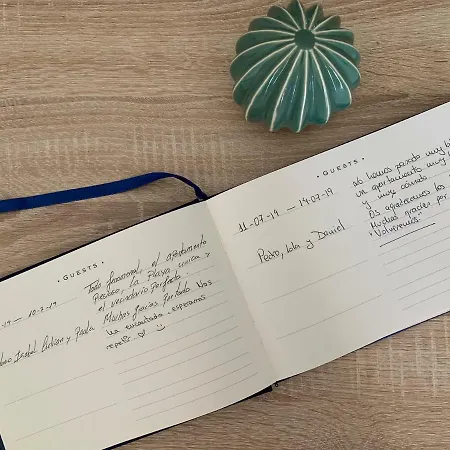 • GUESTS •
-19 — 10-7-19
Isabel y Paola
Todo fenomenal, el Apartamento
Precioso, la Playa única y
el vecindario Perfecto.
Muchas Gracias por todo. Nos
ha encantado, esperamos
repetir
• GUESTS •
11-07-19 — 14-07-19
Pedro, Lola y Daniel
hemos pasado muy
un apartamento muy
y muy cómodo
Os agradecemos los
Muchas gracias por
Volveremos.